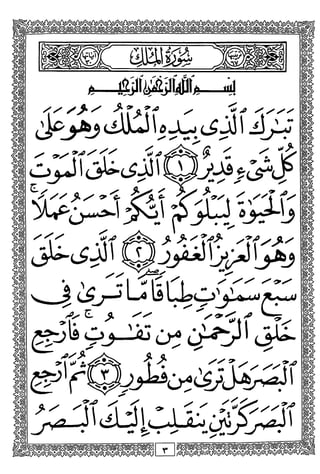 سُورَةُ الْمُلْكِ
بِسْمِ اللَّهِ الرَّحْمَٰنِ الرَّحِيمِ
تَبَارَكَ الَّذِي بِيَدِهِ الْمُلْكُ وَهُوَ عَلَىٰ
كُلِّ شَيْءٍ قَدِيرٌ ١ الَّذِي خَلَقَ الْمَوْتَ
وَالْحَيَوٰةَ لِيَبْلُوَكُمْ أَيُّكُمْ أَحْسَنُ عَمَلًا ۚ
وَهُوَ الْعَزِيزُ الْغَفُورُ ٢ الَّذِي خَلَقَ
سَبْعَ سَمَٰوَٰتٍ طِبَاقًا ۖ مَّا تَرَىٰ فِي
خَلْقِ الرَّحْمَٰنِ مِن تَفَٰوُتٍ ۖ فَارْجِعِ
الْبَصَرَ هَلْ تَرَىٰ مِن فُطُورٍ ٣ ثُمَّ ارْجِعِ
الْبَصَرَ كَرَّتَيْنِ يَنقَلِبْ إِلَيْكَ الْبَصَرُ
٣